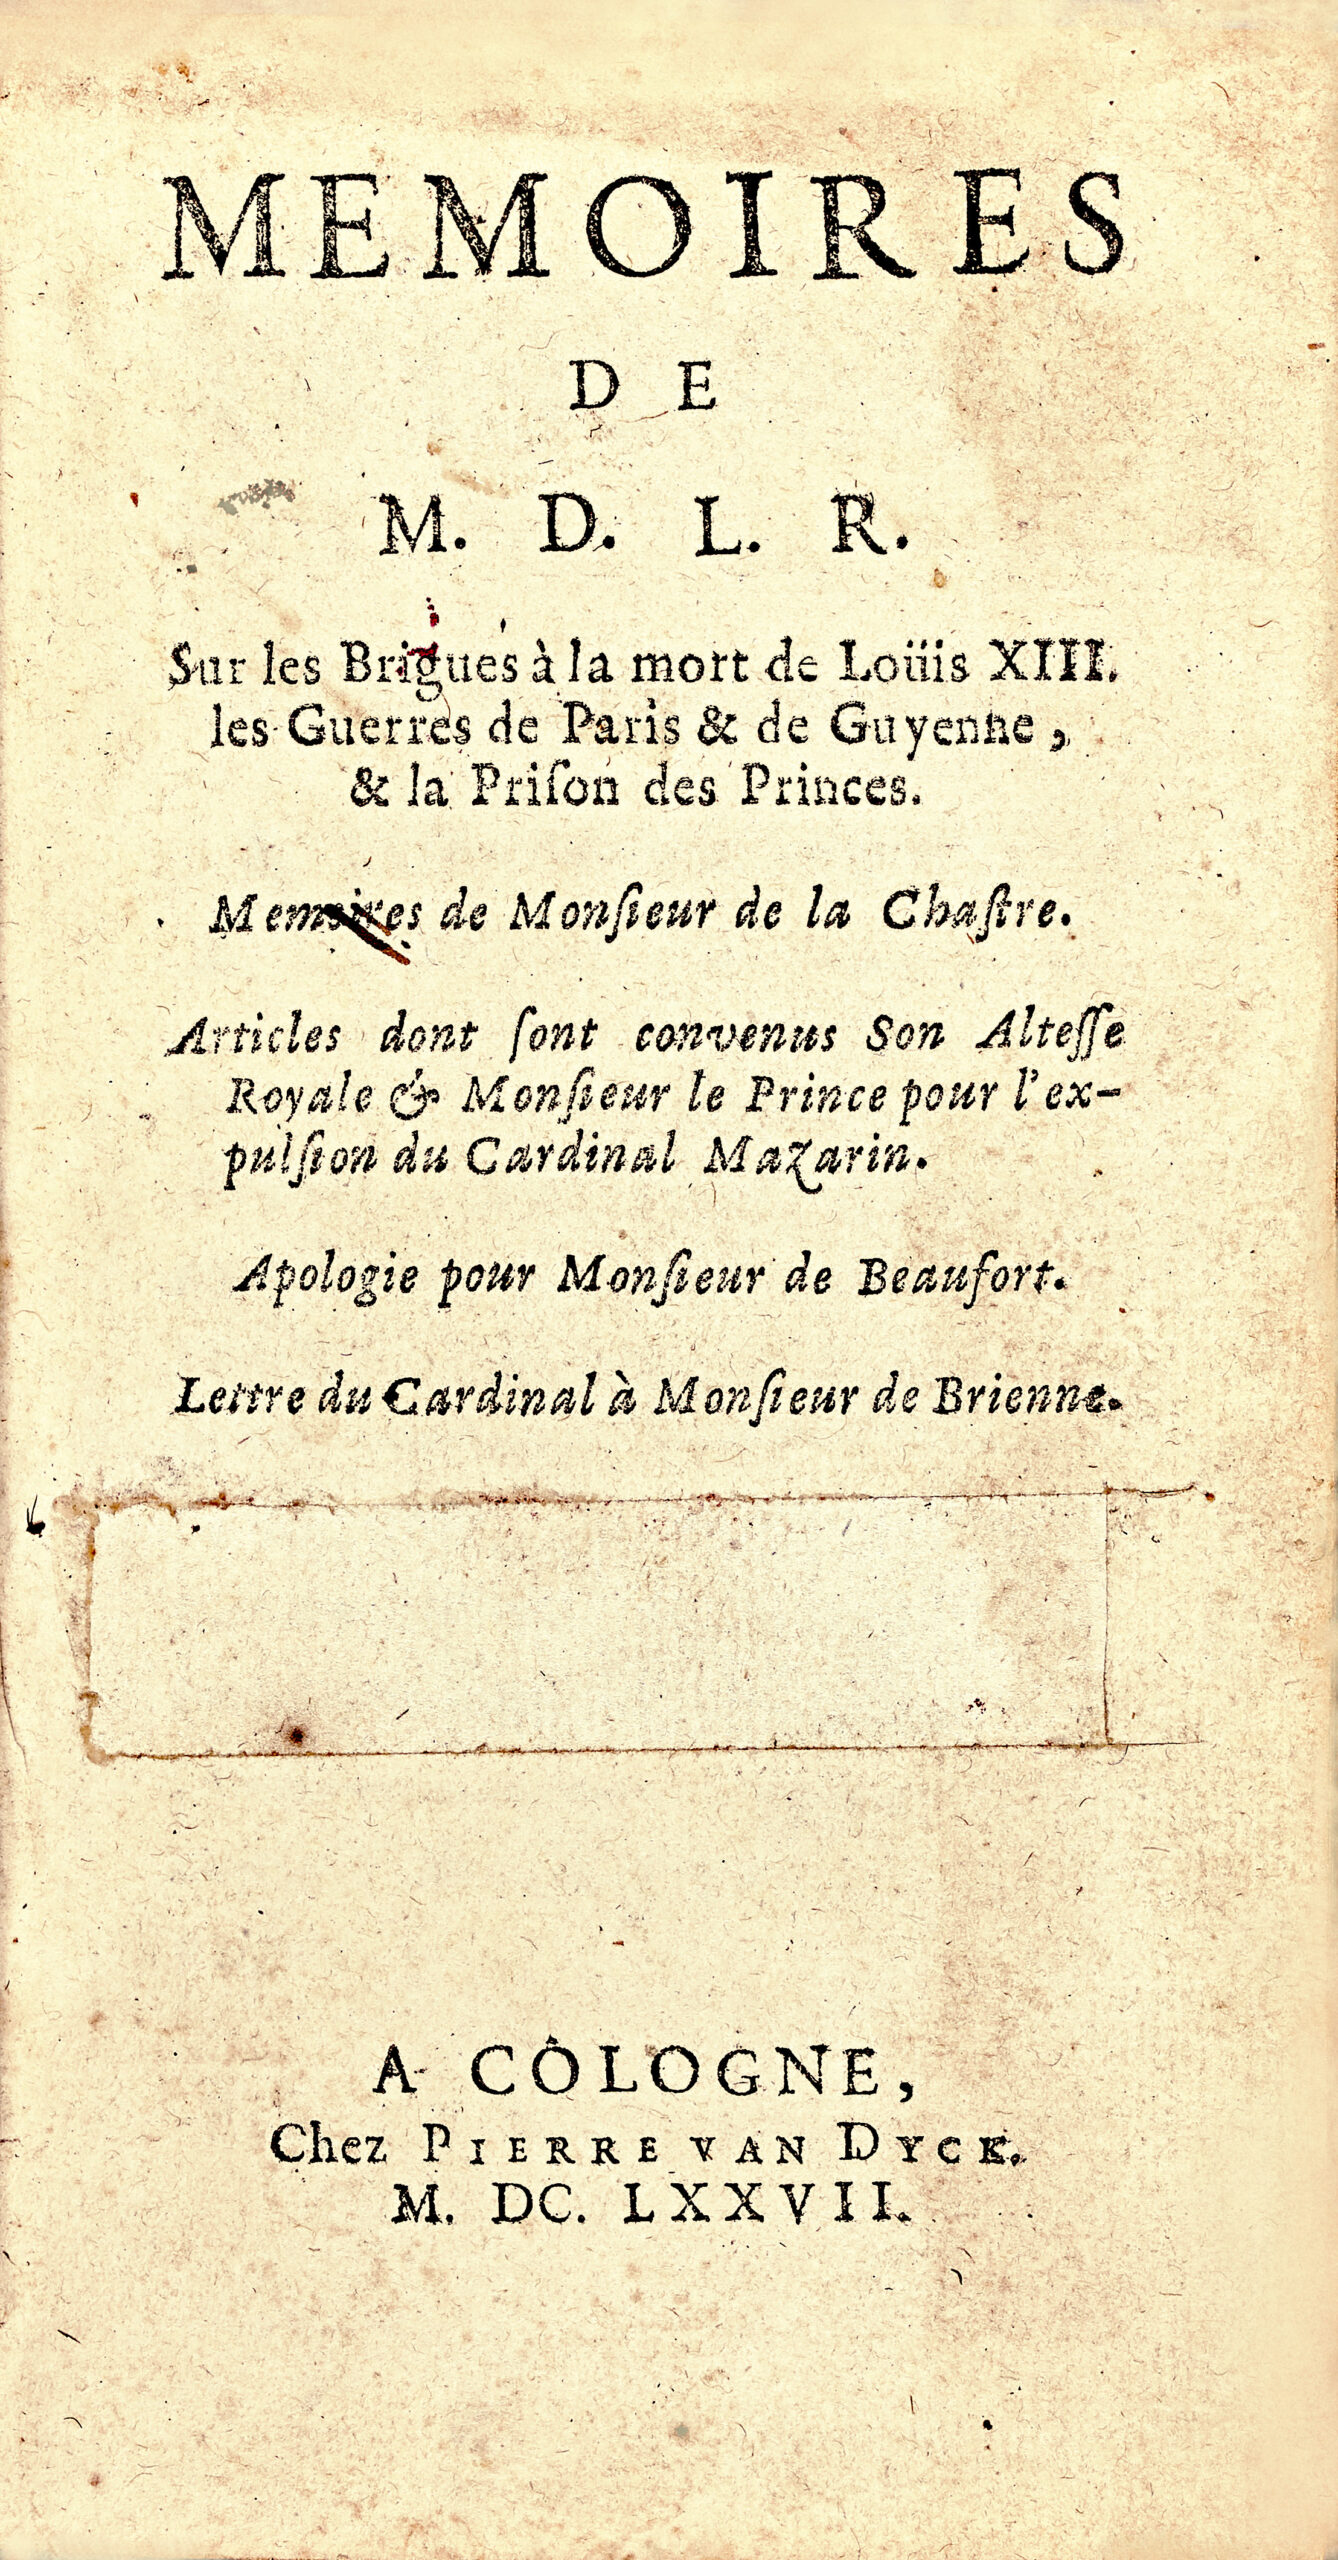 MEMOIRES
DE
M. D. L. R.
Sur les Brigues à la mort de Loüis XIII.
les Guerres de Paris & de Guyenne,
& la Priſon des Princes.
Memoires de Monſieur de la Chaſtre.
Articles dont ſont convenus Son Alteſſe
Royale & Monſieur le Prince pour l'ex-
pulſion du Cardinal Mazarin.
Apologie pour Monſieur de Beaufort.
Lettre du Cardinal à Monſieur de Brienne.
A COLOGNE,
Chez PIERRE VAN DYCK.
M. DC. LXXVII.